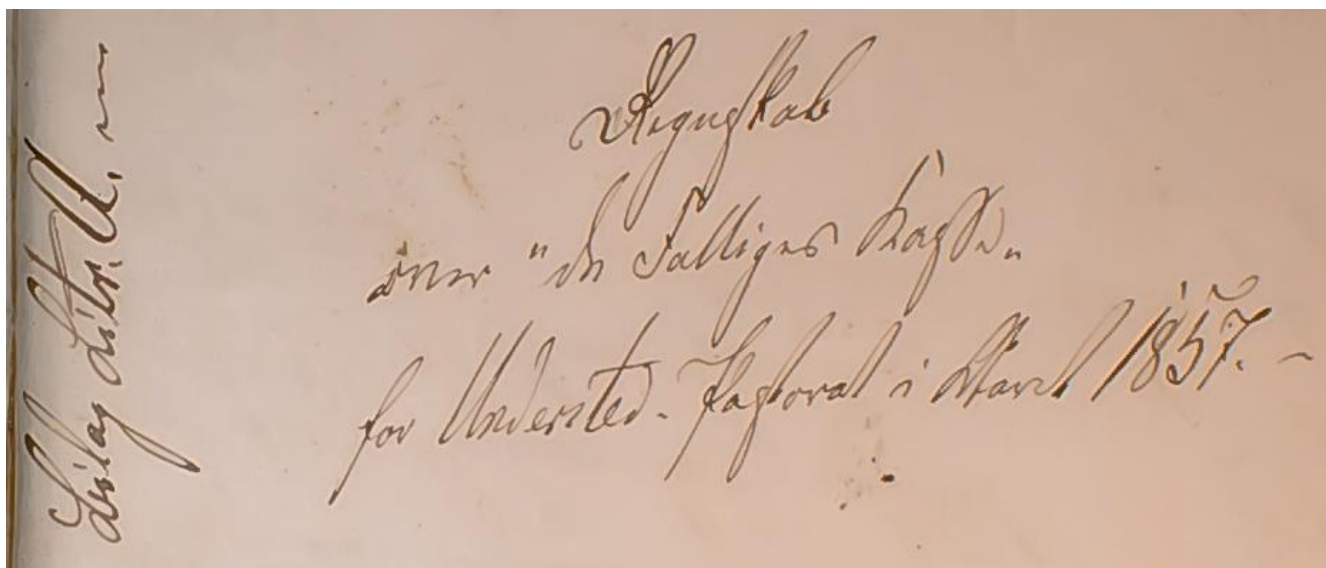 Bilag Litr. A.
Regnskab
over "de Fattiges Kasse"
for Understed Pastorat i Aaret 1857. -